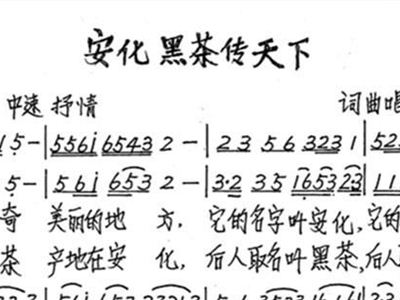 安化黑茶传天下
中速 抒情 词曲唱
5 - | 5 5 6 i 6 5 4 3 2 - | 2 3 5 6 3 2 3 1 | 5 2
5 - | 5 6 i 6 5 3 2 - | 3·2 3 5 1 6 5 3 2 3 | 1 1
奇 美丽的地 方, 它的名字叫安化,它的
茶 产地在安 化, 后人取名叫黑茶,后人